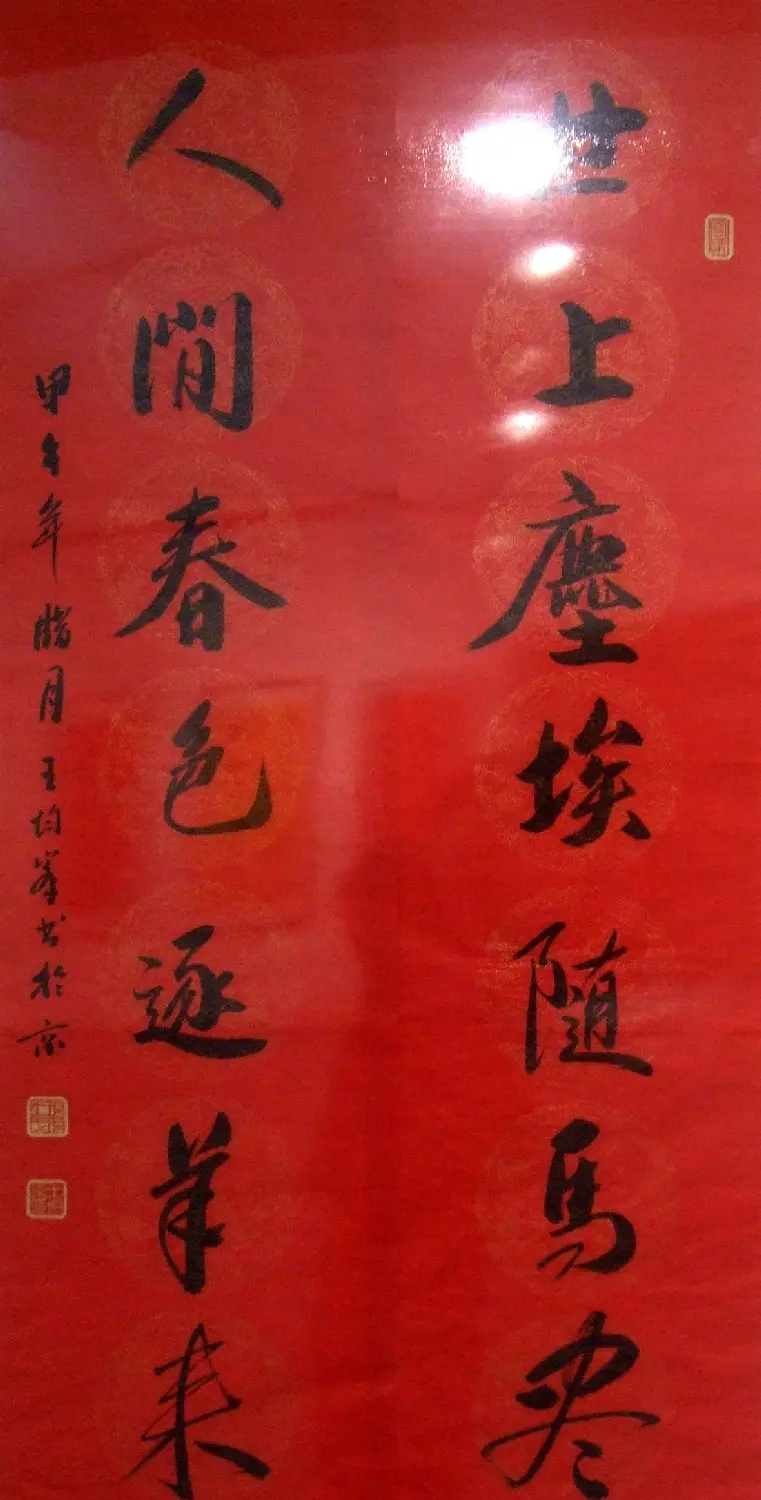 世上塵埃随馬尽
人間春色逐羊来
甲午年臘月王均峯书於京